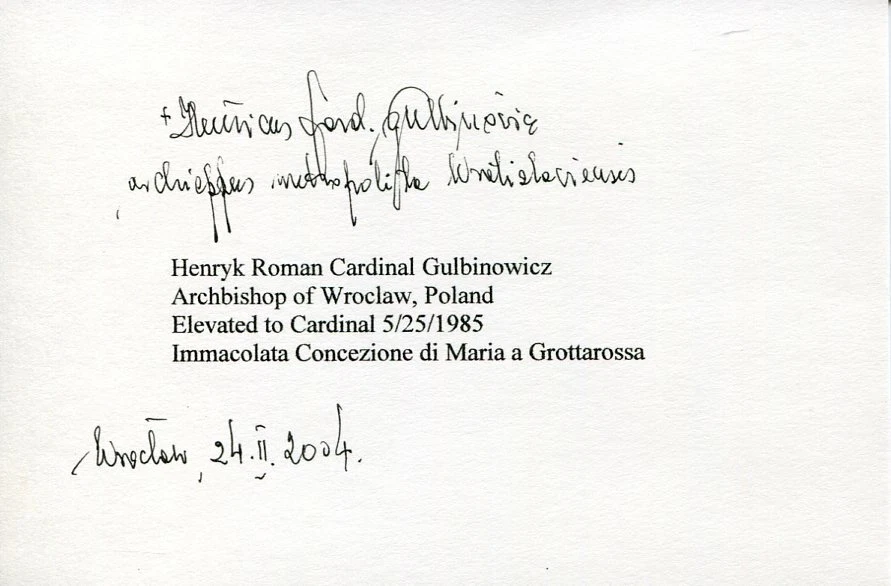 + Henricus Card. Gulbinowicz
archieppus metropolita Wratislaviensis
Henryk Roman Cardinal Gulbinowicz
Archbishop of Wroclaw, Poland
Elevated to Cardinal 5/25/1985
Immacolata Concezione di Maria a Grottarossa
Wrocław, 24.II.2004.